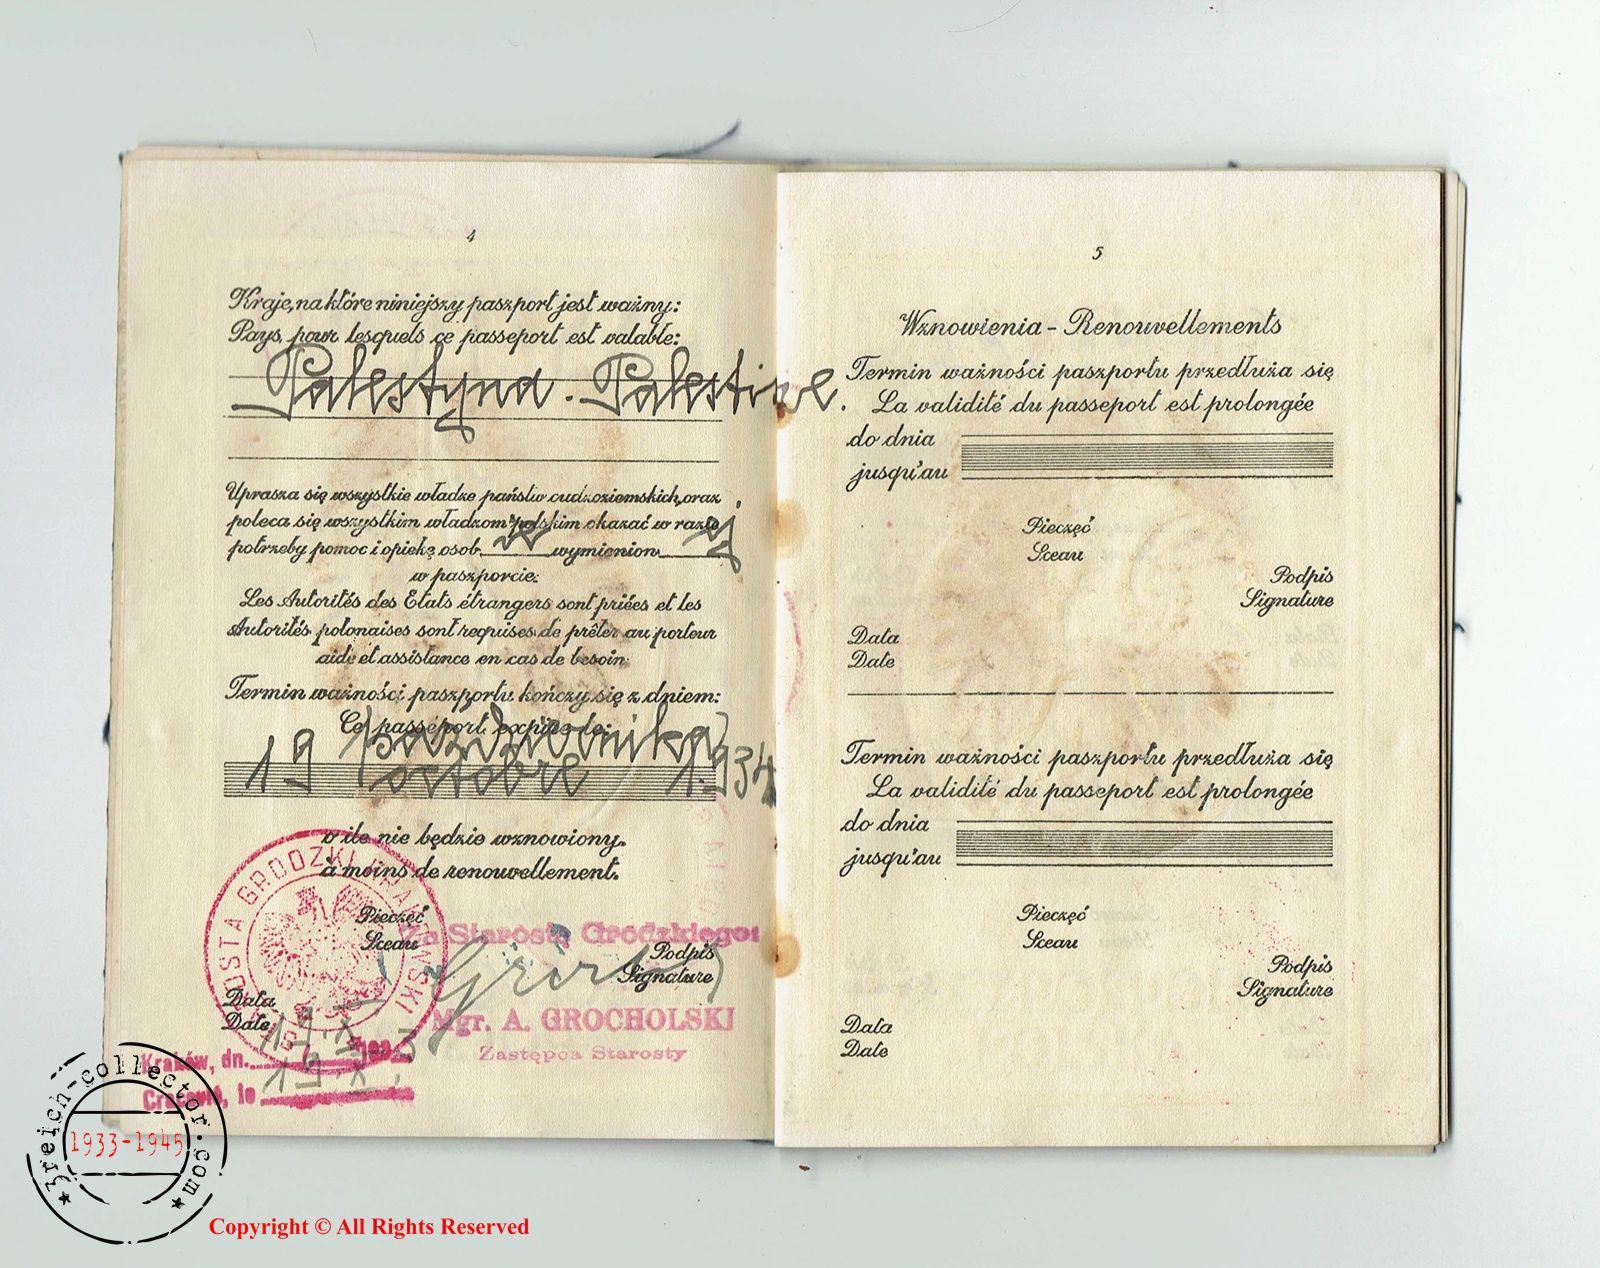 4
Kraje, na które niniejszy paszport jest ważny:
Pays, pour lesquels ce passeport est valable:
Palestyna. Palestine.
Uprasza się wszystkie władze państw cudzoziemskich, oraz
poleca się wszystkim władzom polskim okazać w razie
potrzeby pomoc i opiekę osob ie wymienion ej
w paszporcie:
Les Autorités des Etats étrangers sont priées et les
Autorités polonaises sont requises de prêter au porteur
aide et assistance en cas de besoin:
Termin ważności paszportu kończy się z dniem:
Ce passeport expire le:
19 października
octobre 1934
o ile nie będzie wznowiony.
à moins de renouvellement.
STAROSTA GRODZKI KRAKOWSKI
Pieczęć
Sceau
Za Starostę Grodzkiego:
Podpis
Signature
Mgr. A. GROCHOLSKI
Zastępca Starosty
Data
Date
Kraków, dn. 19.X.
Cracovie, le 19.X.
5
Wznowienia - Renouvellements
Termin ważności paszportu przedłuża się
La validité du passeport est prolongée
do dnia
jusqu'au
Pieczęć
Sceau
Podpis
Signature
Data
Date
Termin ważności paszportu przedłuża się
La validité du passeport est prolongée
do dnia
jusqu'au
Pieczęć
Sceau
Podpis
Signature
Data
Date
3reich-collector.com
1933-1945
Copyright © All Rights Reserved